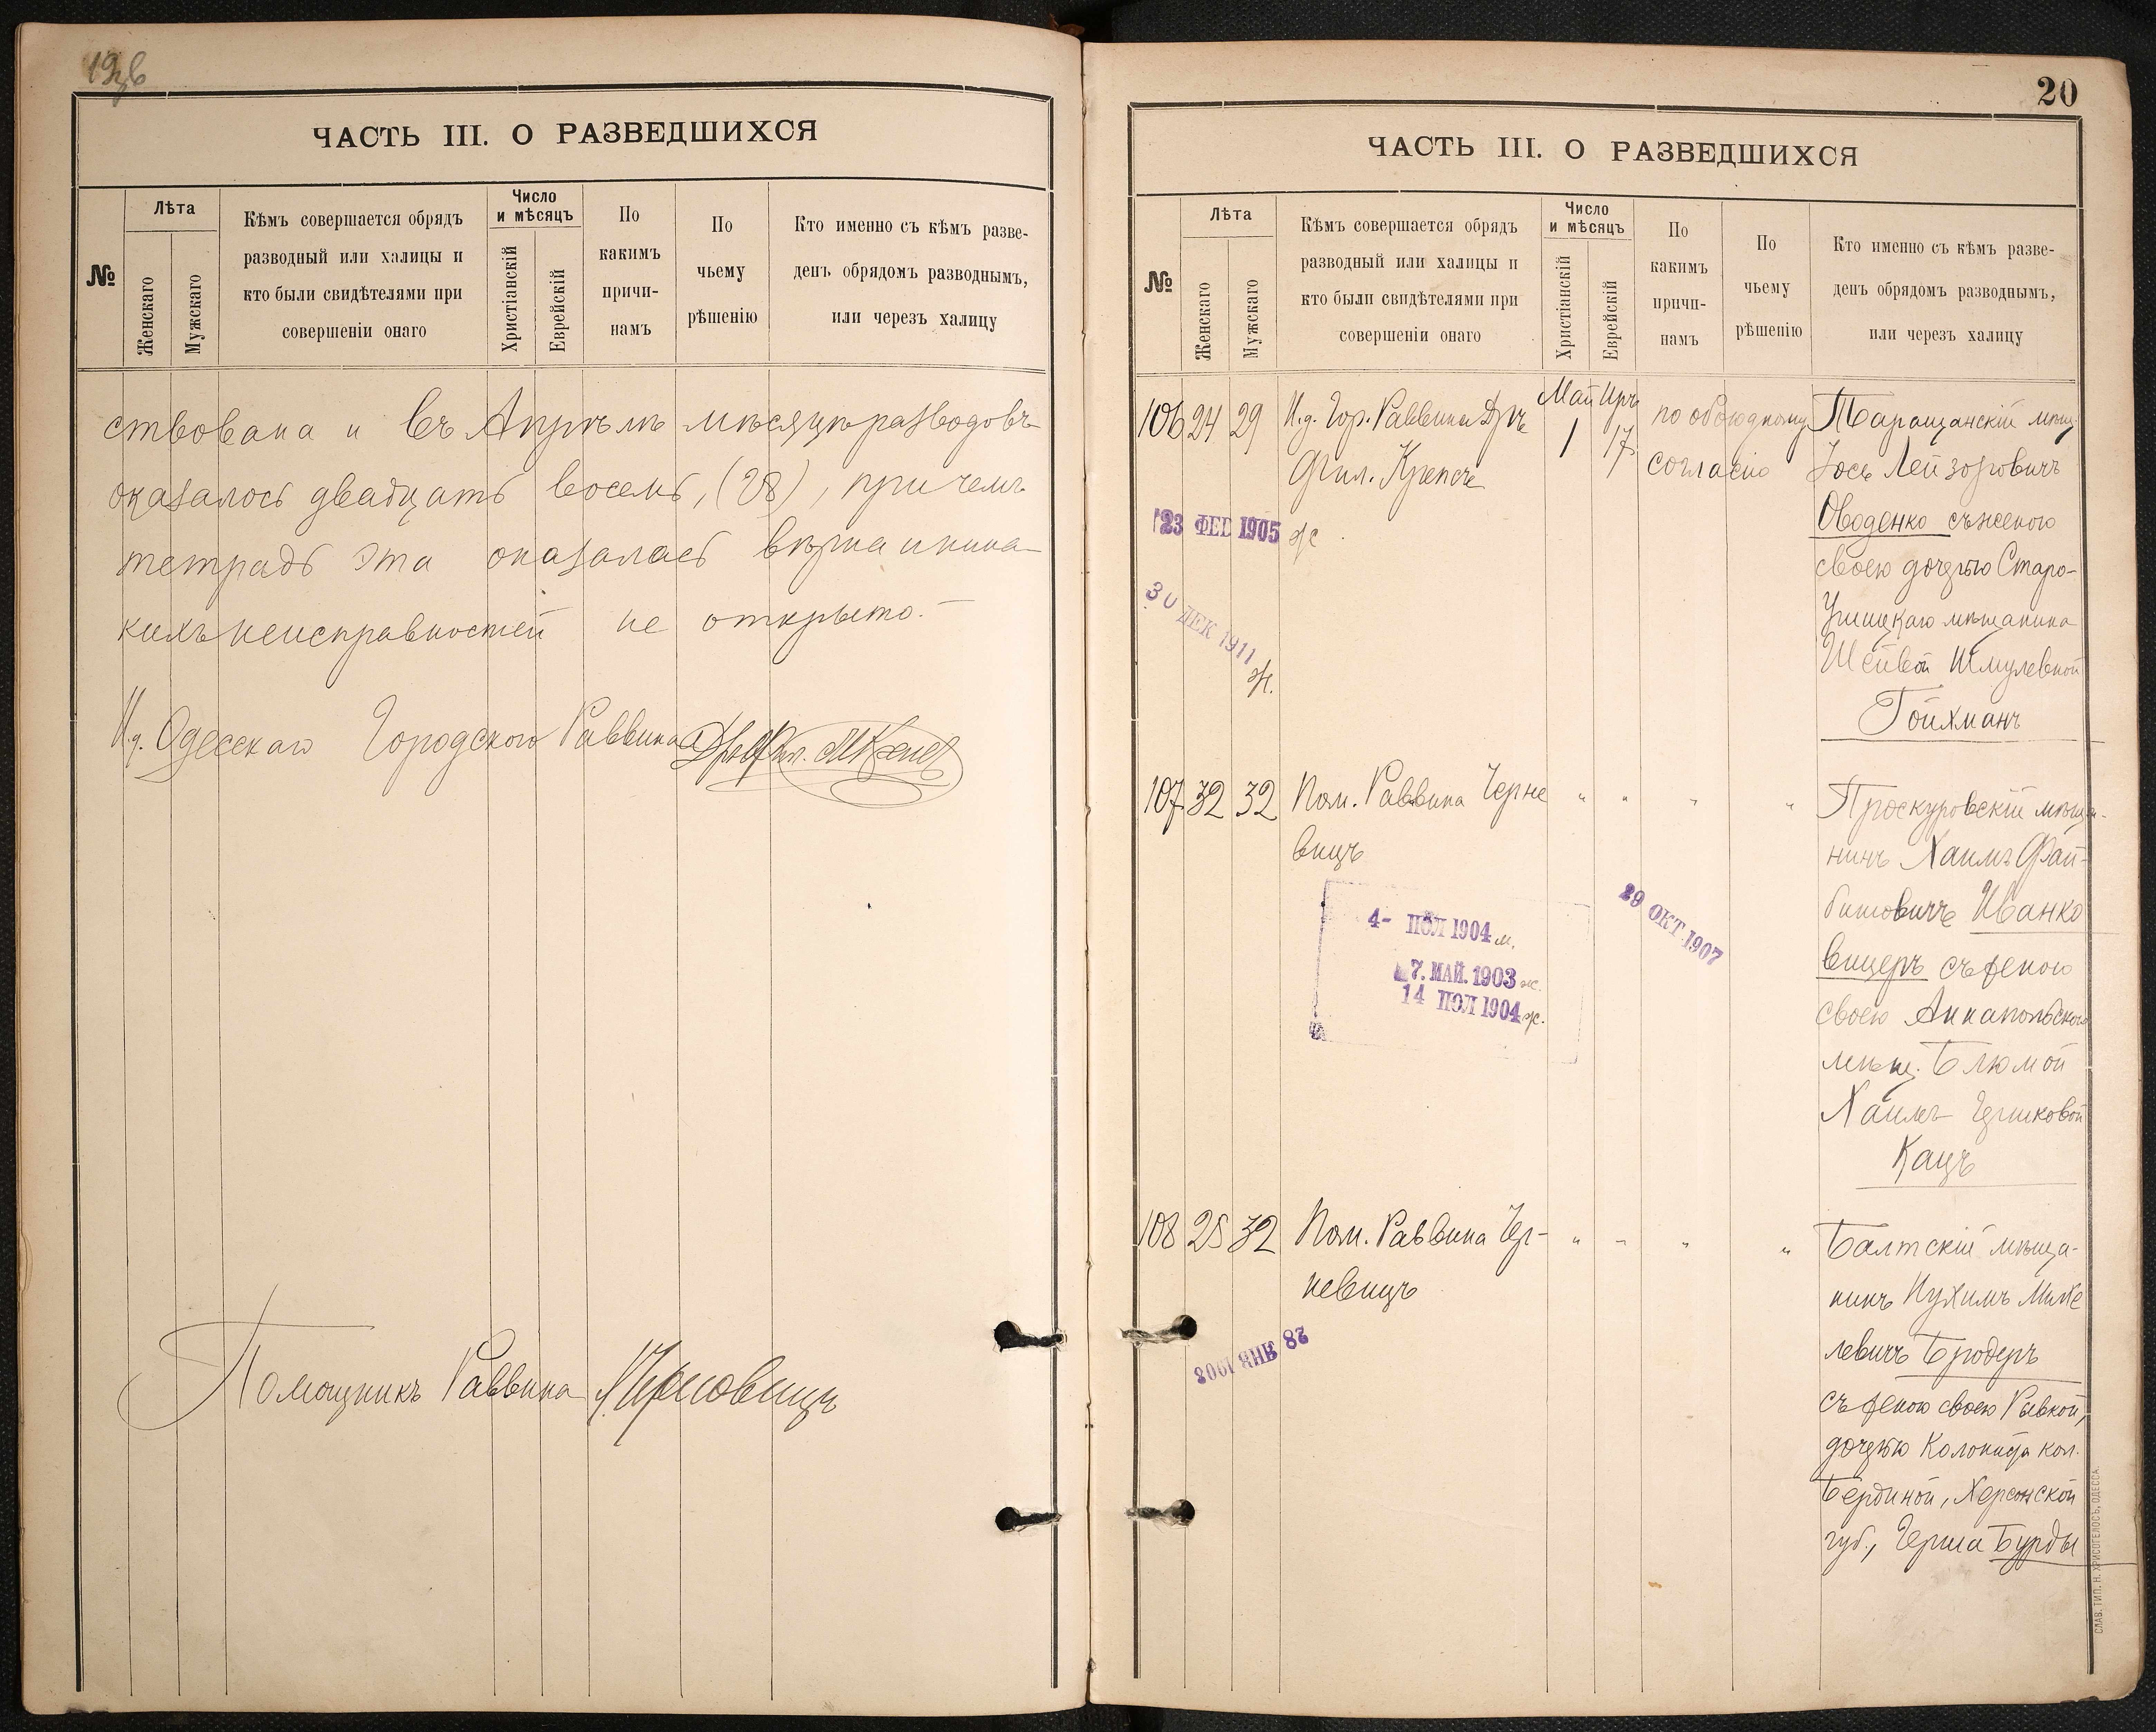 ЧАСТЬ III. О РАЗВЕДШИХСЯ
№
Лѣта
Женскаго
Мужскаго
Кѣмъ совершается обрядъ
разводный или халицы и
кто были свидѣтелями при
совершеніи онаго
Число
и мѣсяцъ
Христіанскій
Еврейскій
По
какимъ
причи-
намъ
По
чьему
рѣшенію
Кто именно съ кѣмъ разве-
денъ обрядомъ разводнымъ,
или черезъ халицу
ствована и въ Апрѣлѣ мѣсяцѣ разводовъ
оказалось двадцать восемь, (28), при чемъ
тетрадь эта оказалась вѣрна и ника-
кихъ неисправностей не открыто.
И.д. Одесскаго Городского Раввина
Помощникъ Раввина Черновицъ
20
ЧАСТЬ III. О РАЗВЕДШИХСЯ
№
Лѣта
Женскаго
Мужскаго
Кѣмъ совершается обрядъ
разводный или халицы и
кто были свидѣтелями при
совершеніи онаго
Число
и мѣсяцъ
Христіанскій
Еврейскій
По
какимъ
причи-
намъ
По
чьему
рѣшенію
Кто именно съ кѣмъ разве-
денъ обрядомъ разводнымъ,
или черезъ халицу
106 24 29 И.д. Гор. Раввина Д-ръ
Фил. Крепсъ
Май Иръ
1 17
по обоюдному
согласію
Таращанскій мѣщ.
Іось Лейзоровичъ
Оводенко съ женою
своею дочерью Старо-
Ушицкаго мѣщанина
Шейвой Шмулевной
Гойхманъ
23 ФЕВ 1905 ж
30 ДЕК 1911
ж.
107 32 32 Пом. Раввина Черне
вицъ
" " " "
Проскуровскій мѣща-
нинъ Хаимъ Фай-
бишовичъ Иванко
вицеръ съ женою
своею Аннапольского
мѣщ. Блюмой
Хаимъ Гершковой
Кацъ
4- ІЮЛ 1904 м.
7. МАЙ. 1903 ж.
14 ІЮЛ 1904 ж.
29 ОКТ. 1907
108 25 32 Пом. Раввина Чер-
невицъ
" " " "
Балтскій мѣща-
нинъ Нухимъ Михе
левичъ Бродеръ
съ женою своею Рывкой,
дочерью Колониста кол.
Бердиной, Херсонской
губ., Герша Бурды
28 ЯНВ 1903
СЛАВ. ТИП. Н. ХРИСОГЕЛОСЪ, ОДЕССА.